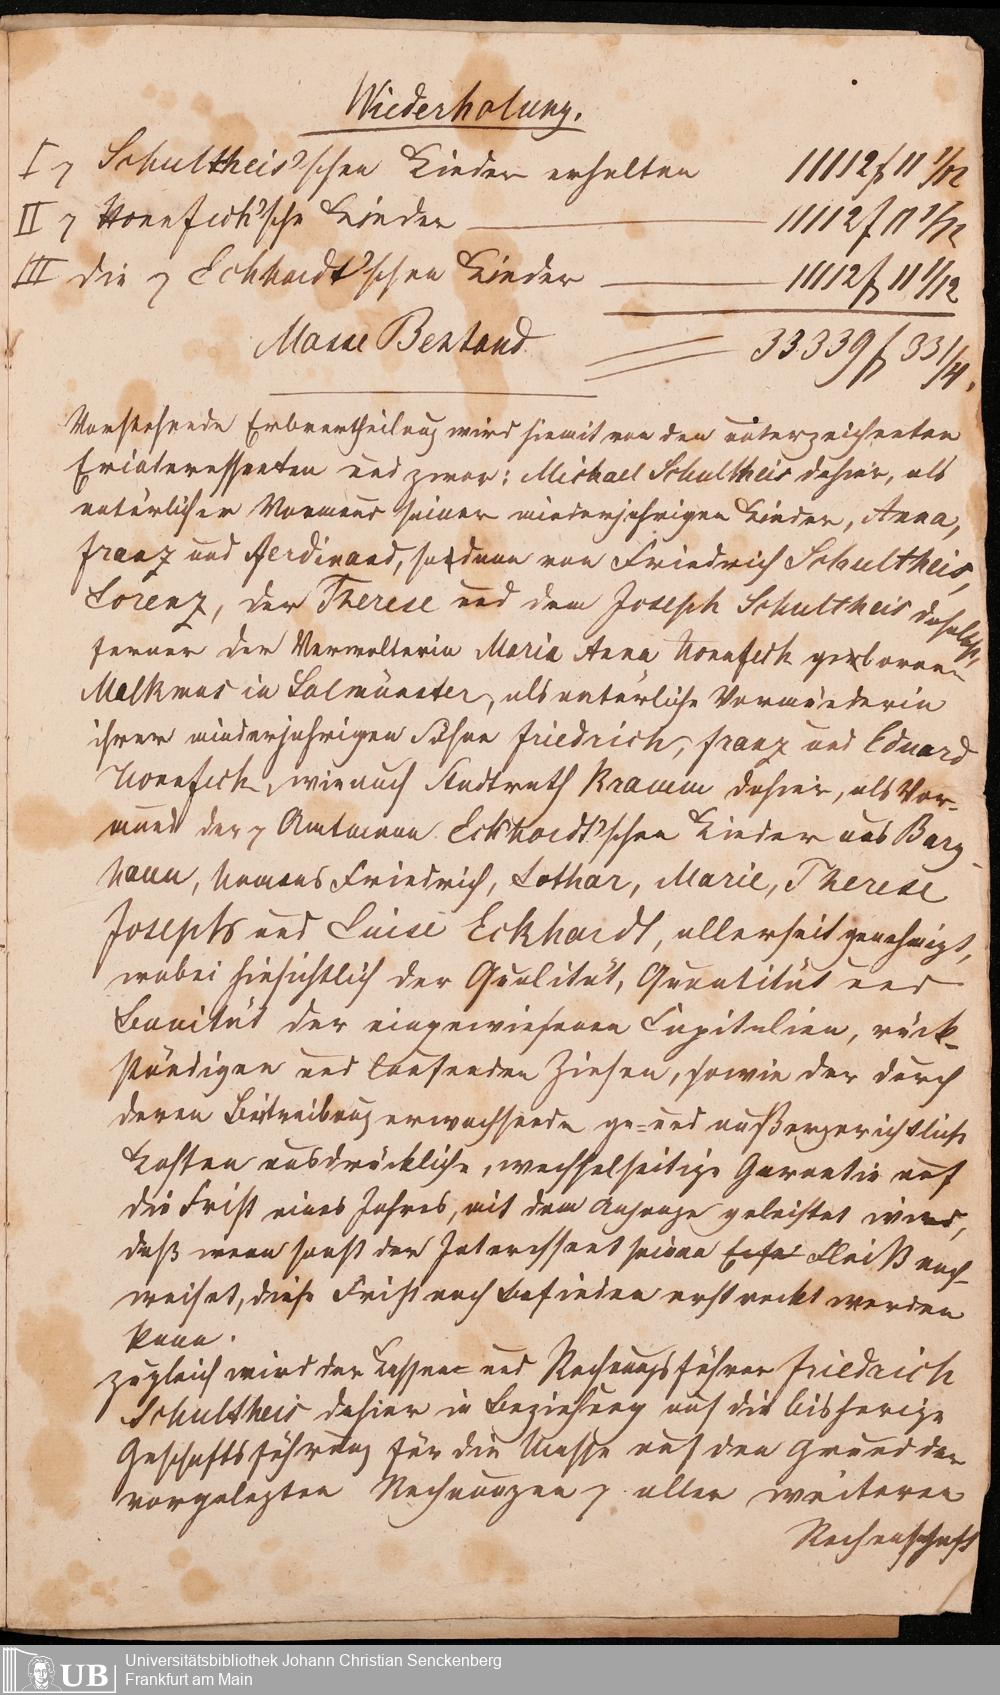 Wiederholung.
I, Schultheis'schen Kinder erhalten 11112 f 11 1/12
II, Nonnfech'sche Kinder 11112 f 11 1/12
III die, Eckhardt'schen Kinder 11112 f 11 1/12
Masse Bestand 33339 f 33 1/4.
Vorstehende Erbvertheilung wird hiemit von den unterzeichneten
Erbinteressenten und zwar: Michael Schultheis dahier, als
natürlicher Vormund seiner minderjährigen Kinder, Anna,
Franz und Ferdinand, sodann von Friedrich Schultheis,
Lorenz, der Therese und dem Joseph Schultheis daselbst,
ferner der Verwalterin Maria Anna gebornen
Malkmus in Salmünster, als natürliche Vormünderin
ihrer minderjährigen Söhne Friedrich, Franz und Eduard
wie auch Stadtrath Kramm dahier, als Vor-
mund der, Amtmann Eckhardt'schen Kinder aus Burg-
haun, Namens Friedrich, Lothar, Marie, Therese
Josepha und Luise Eckhardt, allerseit genehmigt,
wobei hinsichtlich der Qualität, Quantität und
Bonität der eingewiesenen Capitalien, rück-
ständigen und laufenden Zinsen, sowie der durch
deren Beitreibung erwachsende ge- und außergerichtliche
Kosten ausdrückliche, wechselseitige Garantie auf
die Frist eines Jahres, mit dem Anhange geleistet wird,
daß wenn sonst der Interessent seinen Fleiß nach-
weiset, diese Frist nach Befinden erstreckt werden
kann.
Zugleich wird der Kassen- und Rechnungsführer Friedrich
Schultheis dahier in Beziehung auf die bisherige
Geschäftsführung für die Masse auf den Grund der
vorgelegten Rechnungen, aller weiteren
Rechenschaft
UB
Universitätsbibliothek Johann Christian Senckenberg
Frankfurt am Main